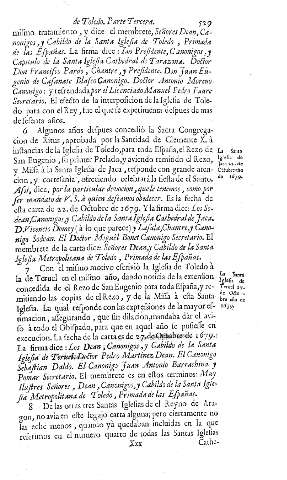 de Toledo. Parte Tercera. 529
mismo tratamiento, y dice el membrete, Señores Dean, Ca-
nonigos, y Cabildo de la Santa Iglesia de Toledo, Primada
de las Españas. La firma dice: Los Presidente, Canonigos, y
Capitulo de la Santa Iglesia Cathedral de Tarazona. Doctor
Don Francisco Parós, Chantre, y Presidente. Don Juan Eu-
genio de Casanate Blasco Canonigo. Doctor Antonio Moreno
Canonigo: y refrendada por el Licenciado Manuel Pedro Fuare
Secretario. El efecto de la interposicion de la Iglesia de Tole-
do para con el Rey, fue el que se experimentò despues de mas
de sesenta años.
6 Algunos años despues concediò la Sacra Congrega-
cion de Ritus, aprobada por la Santidad de Clemente X. à
instancias de la Iglesia de Toledo, para toda España, el Rezo de
San Eugenio, su primer Prelado, y aviendo remitido el Rezo,
y Missa à la Santa Iglesia de Jaca, responde con grande aten-
cion, y cortesania, ofreciendo celebrar la fiesta de el Santo.
Assi, dice, por la particular devocion, que le tenemos, como por
ser mandato de V.S. à quien deseamos obedecer. Es la fecha de
esta carta de 22. de Octubre de 1679. Y la firma dice: Los De-
dean, Canonigos, y Cabildo de la Santa Iglesia Cathedral de Jaca.
D. Vicencio Domec (à lo que parece) y Lasala, Chantre, y Cano-
nigo Sodean. El Doctor Miguel Bonet Canonigo Secretario. El
membrete de la carta dice: Señores Dean, y Cabildo de la Santa
Iglesia Metropolitana de Toledo, Primada de las Españas.
7 Con el mismo motivo escriviò la Iglesia de Toledo à
la de Teruel en el mismo año, dando noticia de la extension
concedida de el Rezo de San Eugenio para toda España, y re-
mitiendo las copias de el Rezo, y de la Missa à esta Santa
Iglesia. La qual responde con las expressiones de la mayor es-
timacion, assegurando, que sin dilacion, mandaba dar el avi-
so à todo el Obispado, para que en aquel año se pusiesse en
execucion. La fecha de la carta es de 27. de Octubre de 1679.
La firma dice: Los Dean, Canonigos, y Cabildo de la Santa
Iglesia de Teruel. Doctor Pedro Martinez Dean. El Canonigo
Sebastian Dalda. El Canonigo Juan Antonio Barrachina y
Pomar Secretario. El membrete es en estos terminos: Muy
Ilustres Señores, Dean, Canonigos, y Cabildo de la Santa Igle-
sia Metropolitana de Toledo, Primada de las Españas.
8 De las otras tres Santas Iglesias de el Reyno de Ara-
gon, no avia en este legajo carta alguna; pero ciertamente no
las eche menos, quando yà quedaban incluidas en la que
referimos en el numero quarto de todas las Santas Iglesias
Xxx Cathe-
La Santa
Iglesia de
Jaca, en 22. de
Octubre año
de 1679.
La Santa
Iglesia de
Teruel en 27.
de Octu-
bre año de
1679.